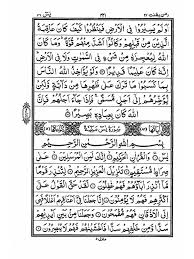 اَوَلَمْ يَسِيْرُوْا فِي الْاَرْضِ فَيَنْظُرُوْا كَيْفَ كَانَ عَاقِبَةُ
الَّذِيْنَ مِنْ قَبْلِهِمْ وَكَانُوْٓا اَشَدَّ مِنْهُمْ قُوَّةً ؕ وَمَا كَانَ
اللّٰهُ لِيُعْجِزَهٗ مِنْ شَيْءٍ فِي السَّمٰوٰتِ وَلَا فِي الْاَرْضِ ؕ
اِنَّهٗ كَانَ عَلِيْمًا قَدِيْرًا ۝ وَلَوْ يُؤَاخِذُ اللّٰهُ النَّاسَ
بِمَا كَسَبُوْا مَا تَرَكَ عَلٰى ظَهْرِهَا مِنْ دَآبَّةٍ وَّلٰكِنْ
يُّؤَخِّرُهُمْ اِلٰٓى اَجَلٍ مُّسَمًّى ۚ فَاِذَا جَآءَ اَجَلُهُمْ فَاِنَّ
اللّٰهَ كَانَ بِعِبَادِهٖ بَصِيْرًا ۝
بِسْمِ اللّٰهِ الرَّحْمٰنِ الرَّحِيْمِ
يٰسٓ ۝ وَالْقُرْاٰنِ الْحَكِيْمِ ۝ اِنَّكَ لَمِنَ الْمُرْسَلِيْنَ ۝ عَلٰى
صِرَاطٍ مُّسْتَقِيْمٍ ۝ تَنْزِيْلَ الْعَزِيْزِ الرَّحِيْمِ ۝ لِتُنْذِرَ
قَوْمًا مَّآ اُنْذِرَ اٰبَآؤُهُمْ فَهُمْ غٰفِلُوْنَ ۝ لَقَدْ حَقَّ الْقَوْلُ عَلٰٓى
اَكْثَرِهِمْ فَهُمْ لَا يُؤْمِنُوْنَ ۝ اِنَّا جَعَلْنَا فِيْٓ اَعْنَاقِهِمْ اَغْلٰلًا
فَهِيَ اِلَى الْاَذْقَانِ فَهُمْ مُّقْمَحُوْنَ ۝ وَجَعَلْنَا مِنْۢ بَيْنِ اَيْدِيْهِمْ
سَدًّا وَّمِنْ خَلْفِهِمْ سَدًّا فَاَغْشَيْنٰهُمْ فَهُمْ لَا يُبْصِرُوْنَ ۝